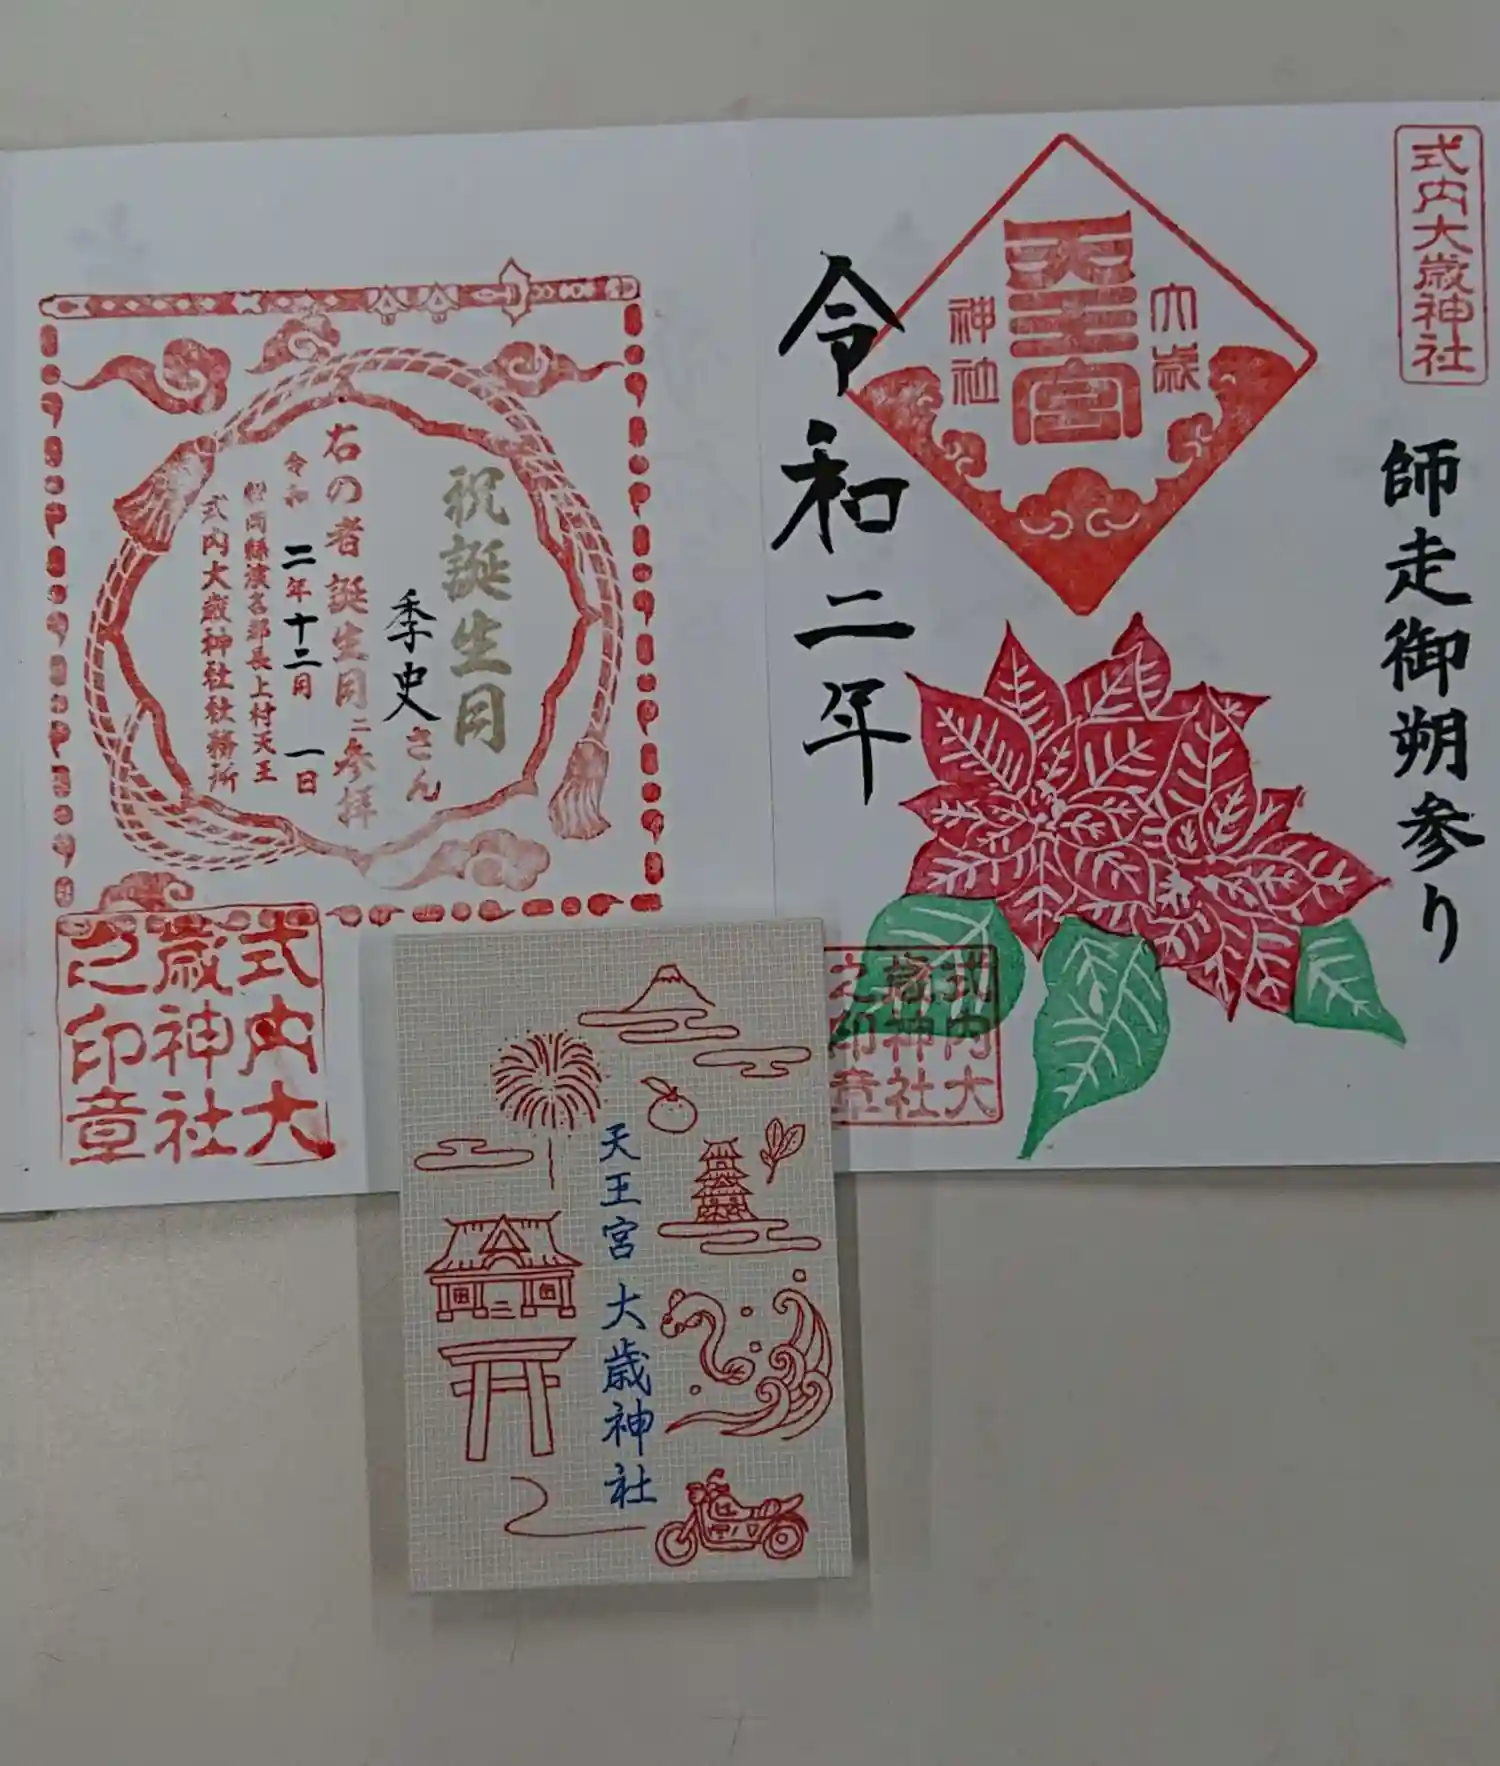 式内大歳神社
師走御朔参り
大歳
天王宮
神社
令和二年
式内大
歳神社
之印章
祝誕生月
季史さん
右の者誕生月ニ参拝
令和二年十二月一日
静岡縣濱名郡長上村天王
式内大歳神社社務所
式内大
歳神社
之印章
天王宮 大歳神社